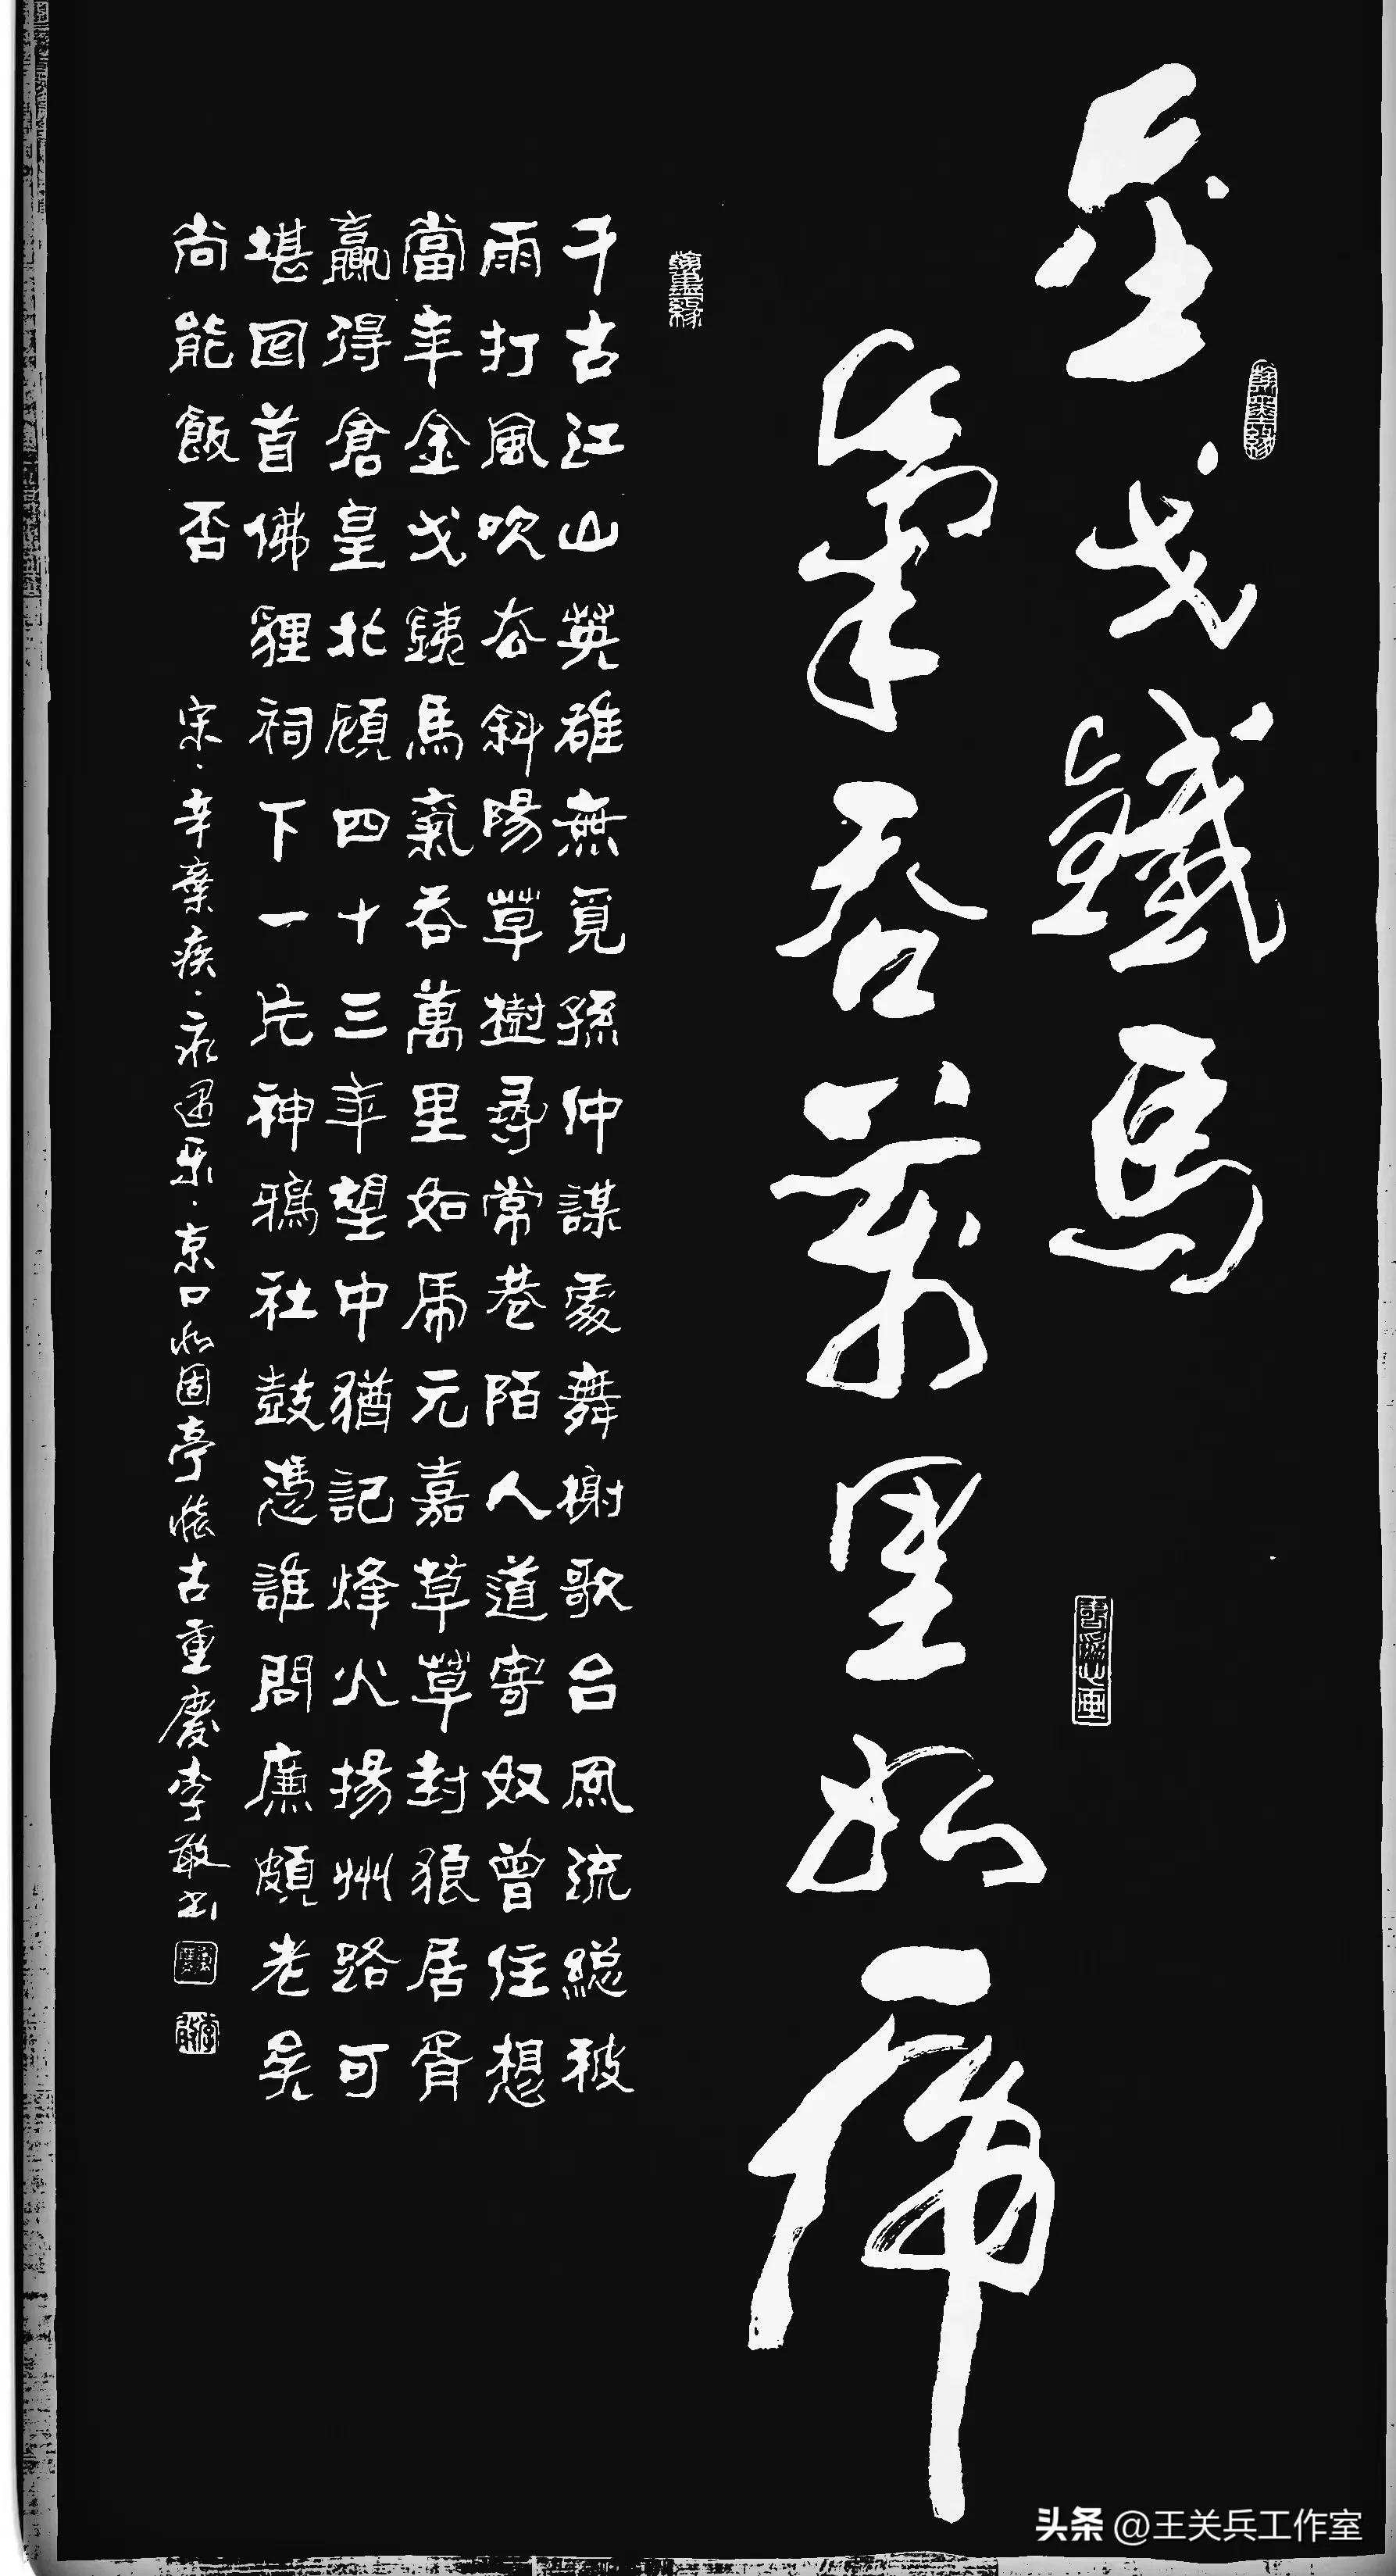 金戈鐵馬
氣吞萬里如虎
翰墨緣
千古江山英雄無覓孫仲謀處舞榭歌台風流總被
雨打風吹去斜陽草樹尋常巷陌人道寄奴曾住想
當年金戈銕馬氣吞萬里如虎元嘉草草封狼居胥
贏得倉皇北顧四十三年望中猶記烽火揚州路可
堪回首佛貍祠下一片神鴉社鼓憑誰問廉頗老矣
尚能飯否 宋·辛棄疾·永遇乐·京口北固亭懷古重慶李敢书
头条 @王关兵工作室